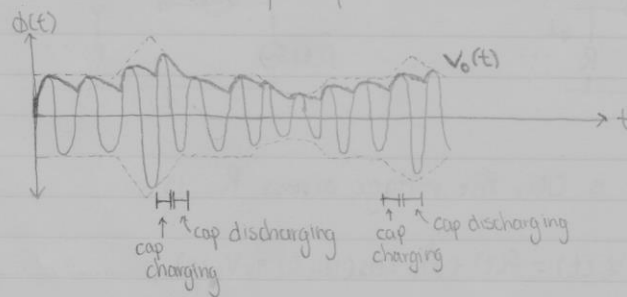 ϕ(t)
V₀(t)
t
cap
charging
cap discharging
cap
charging
cap discharging